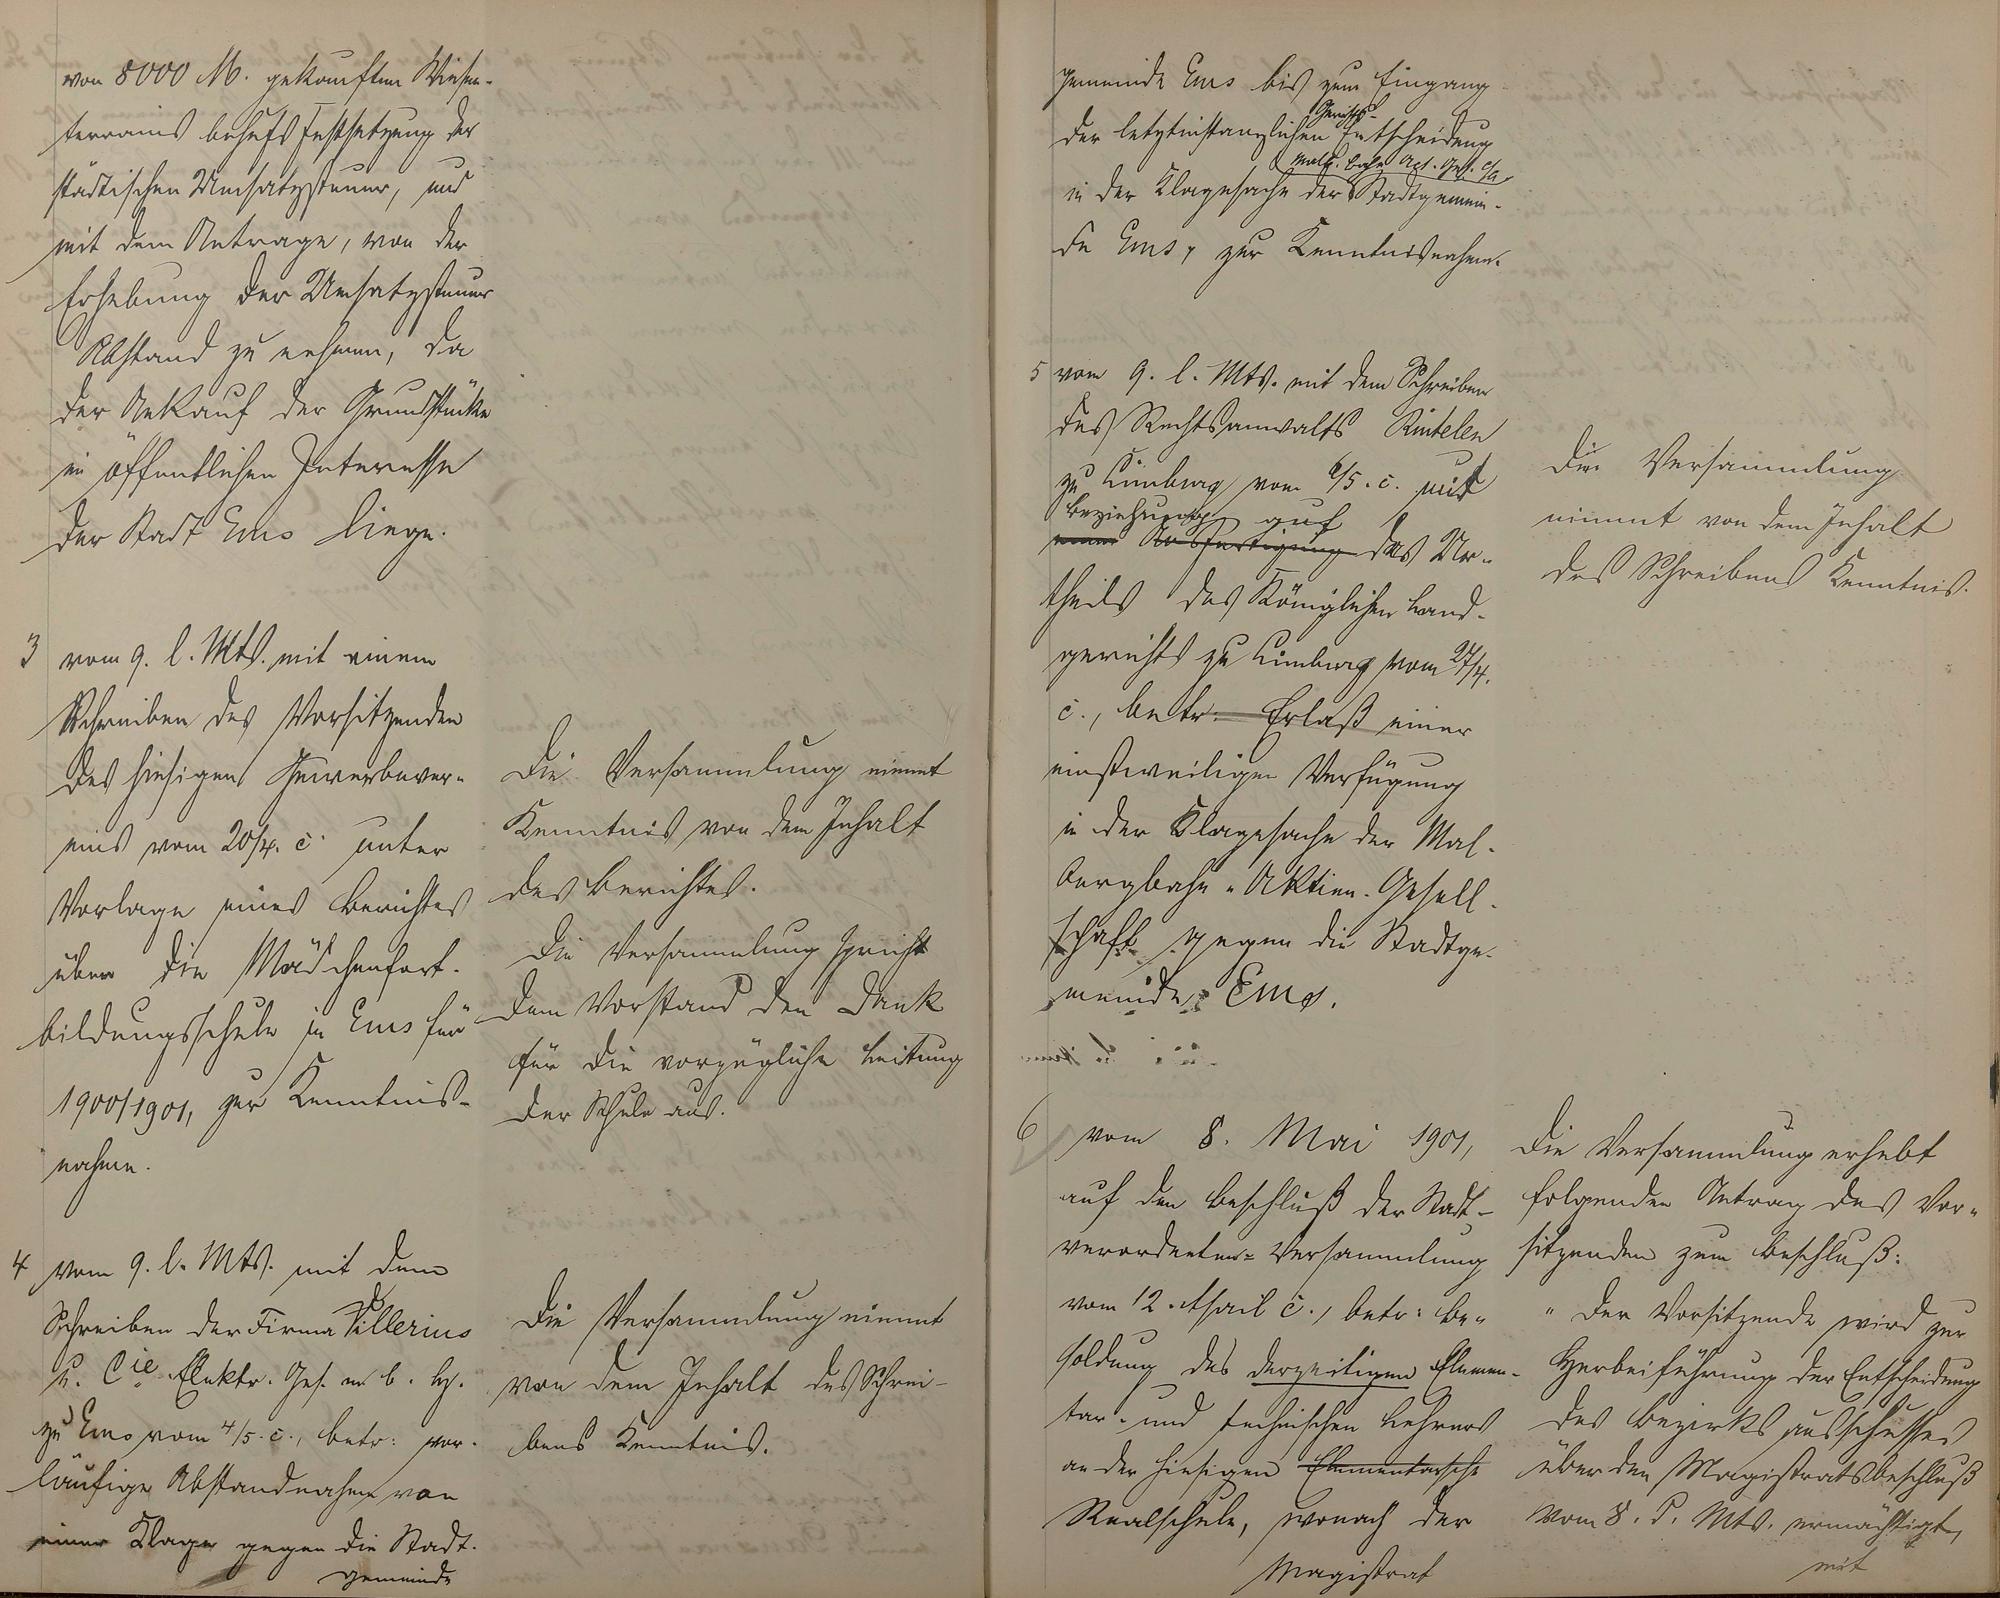 von 8000 M. gekauften Wiesen-
terrains behufs Festsetzung der
städtischen Umsatzsteuer, und
mit dem Antrage, von der
Erhebung der Umsatzsteuer
Abstand zu nehmen, da
der Ankauf der Grundstücke
im öffentlichen Interesse
der Stadt Ems liege.
3 vom 9. l. Mts. mit einem
Schreiben des Vorsitzenden
des hiesigen Gewerbever-
eins vom 20/4. c. unter
Vorlage eines Berichtes
über die Mädchenfort-
bildungsschule in Ems für
1900/1901, zur Kenntnis-
nahme.
Die Versammlung nimmt
Kenntnis von dem Inhalt
des Berichtes.
Die Versammlung spricht
dem Vorstand den Dank
für die vorzügliche Leitung
der Schule aus.
4 vom 9. l. Mts. mit dem
Schreiben der Firma
u. Cie Elektr. Ges. m. b. H.
zu Ems vom 4/5. c., betr: vor-
läufige Abstandnahme von
einer Klage gegen die Stadt-
gemeinde
Die Versammlung nimmt
von dem Inhalt des Schrei-
bens Kenntnis.
gemeinde Ems bis zum Eingang
Gerichts-
der letztinstanzlichen Entscheidung
Malb. bahn Act. Ges. c/a
in der Klagesache der Stadtgemein-
de Ems, zur Kenntnisnahme.
5 vom 9. l. Mts. mit dem Schreiben
des Rechtsanwalts Rintelen
zu Limburg vom 6/5. c. mit
Beziehung auf
einer Ausfertigung das Ur-
theils des Königlichen Land-
gerichts zu Limburg vom 27/4.
c., betr: Erlaß einer
einstweiligen Verfügung
in der Klagesache der Mal-
bergbahn-Aktien-Gesell-
schaft gegen die Stadtge-
meinde Ems.
Die Versammlung
nimmt von dem Inhalt
des Schreibens Kenntnis.
6 vom 8. Mai 1901,
auf den Beschluß der Stadt-
verordneten-Versammlung
vom 12. April c., betr: Be-
soldung des derzeitigen Elemen-
tar- und technischen Lehrers
an der hiesigen Elementarsche
Realschule, wonach der
Magistrat
Die Versammlung erhebt
folgenden Antrag des Vor-
sitzenden zum Beschluß:
"Der Vorsitzende wird zur
Herbeiführung der Entscheidung
des Bezirksausschusses
über den Magistratsbeschluß
vom 8. d. Mts. ermächtigt,
mit